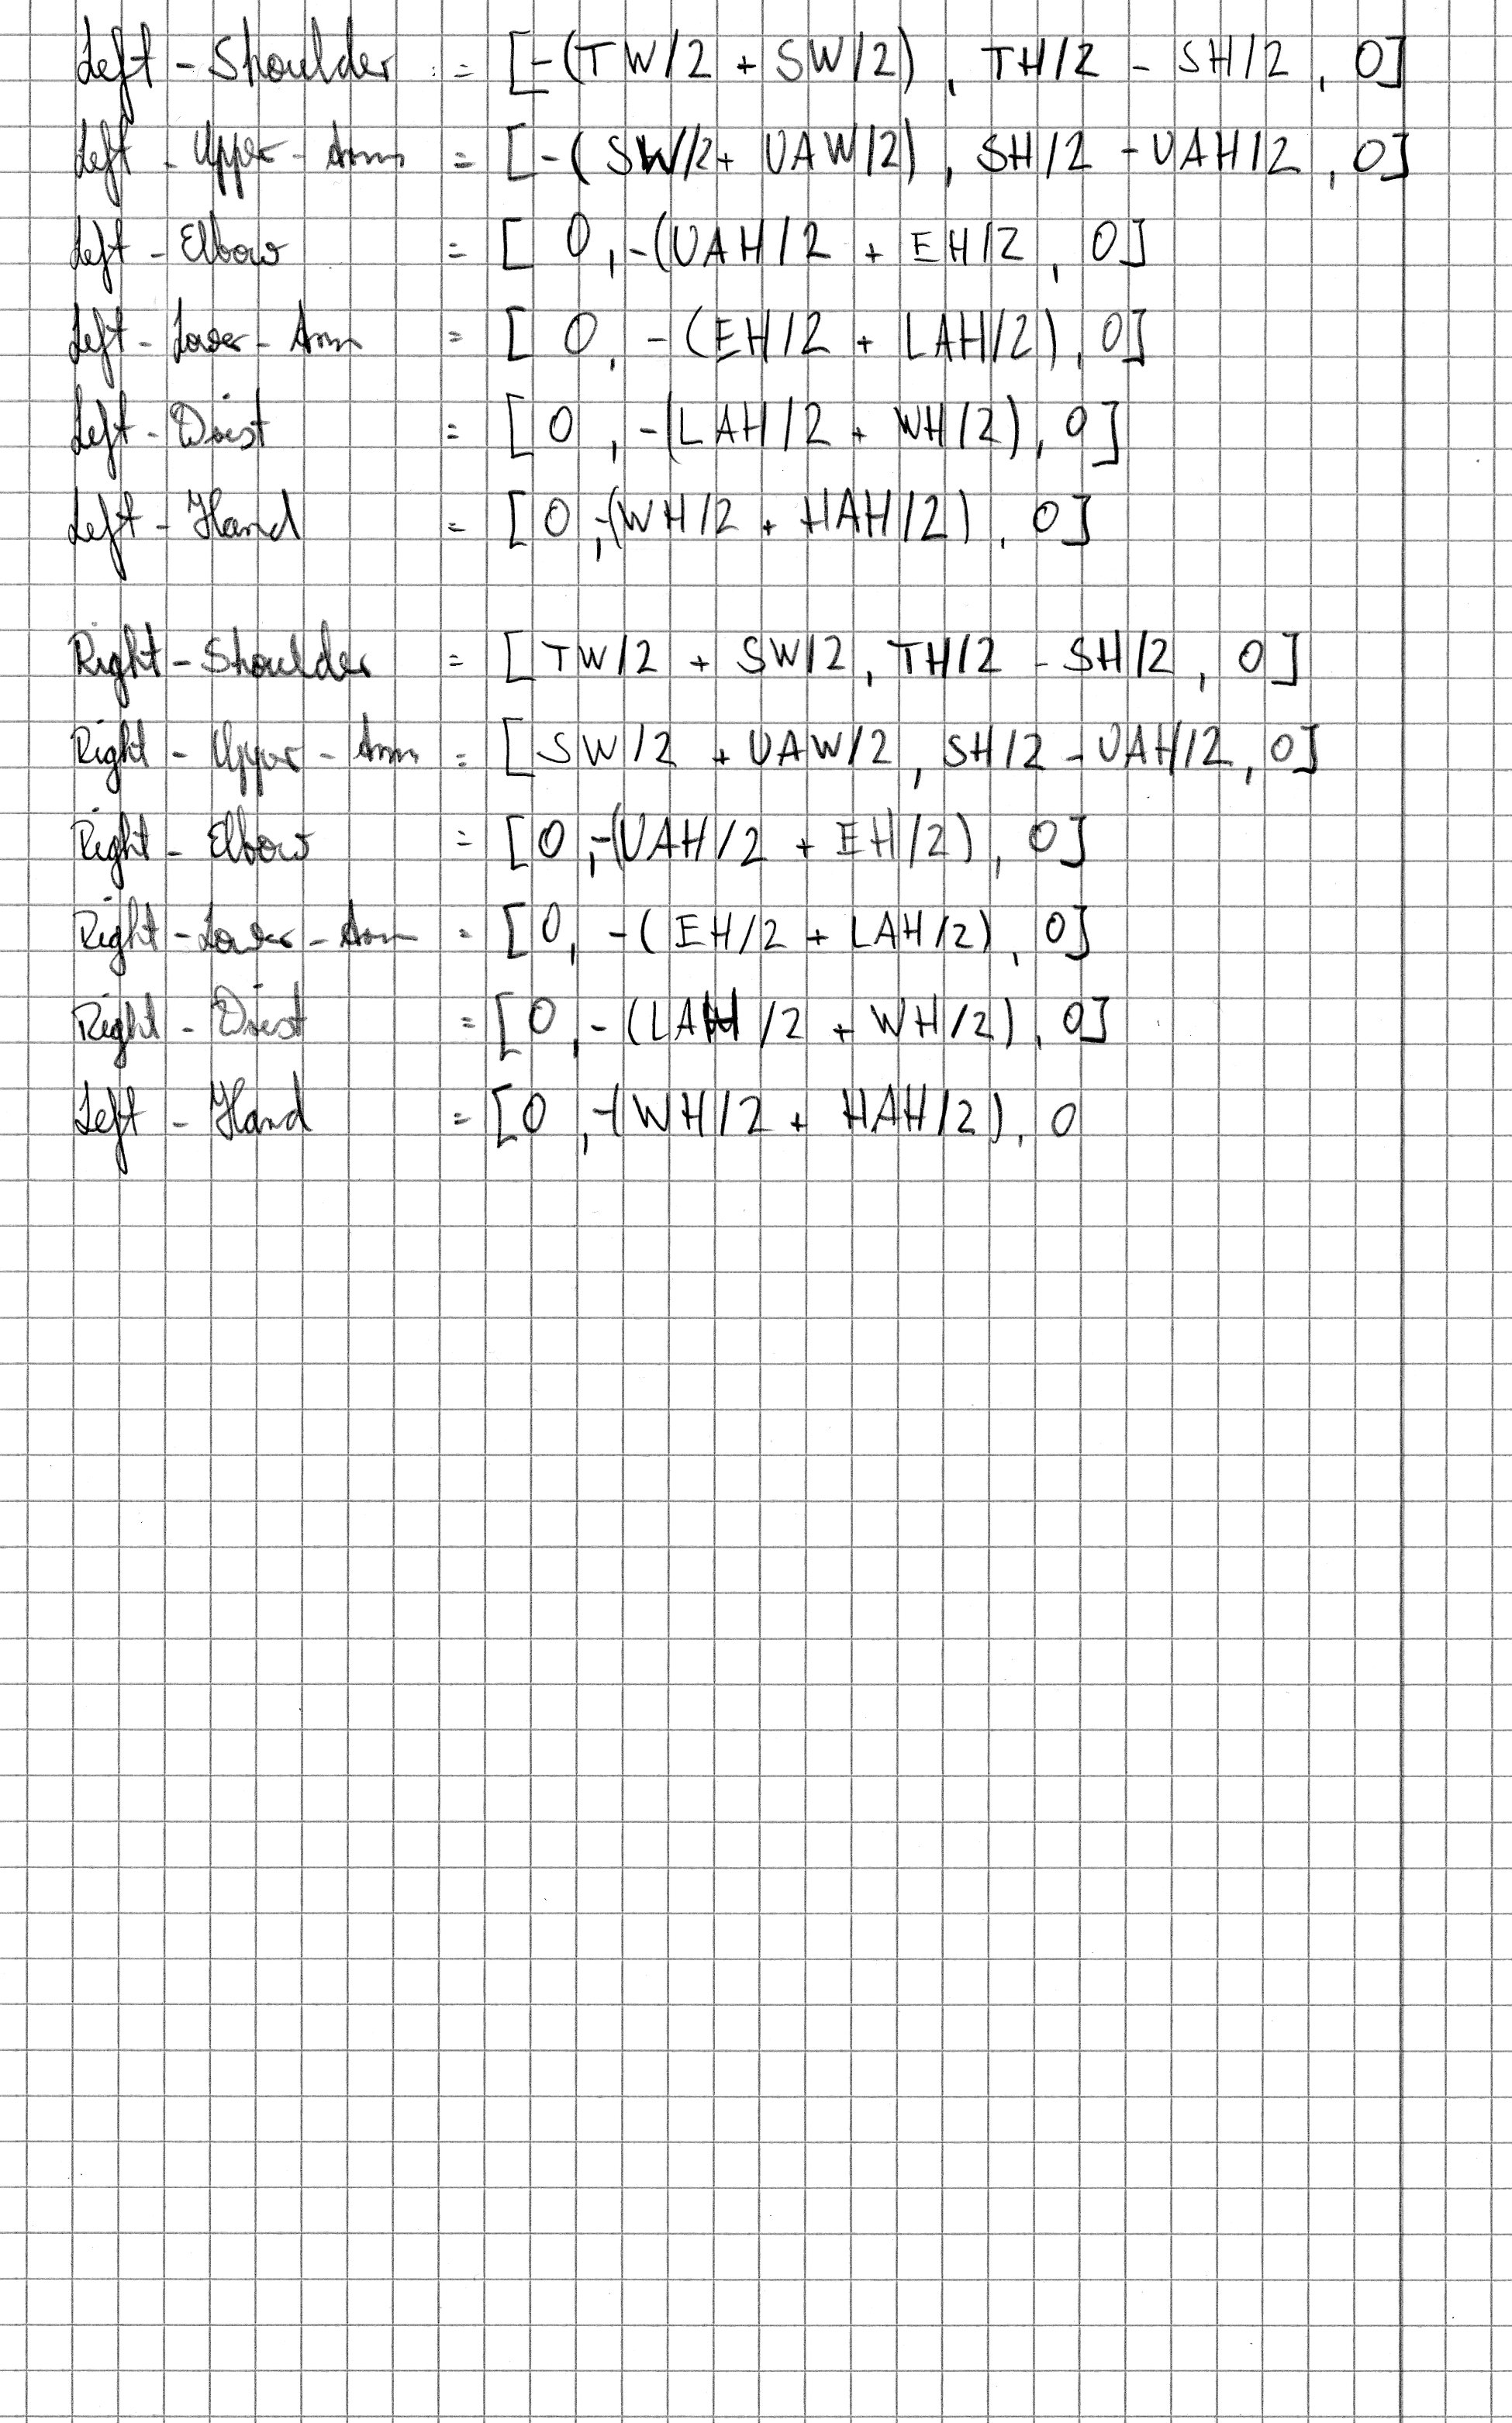 Left - Shoulder = [-(TW/2 + SW/2), TH/2 - SH/2, 0]
Left - Upper - Arm = [-(SW/2 + UAW/2), SH/2 - UAH/2, 0]
Left - Elbow = [0, -(UAH/2 + EH/2, 0]
Left - Lower - Arm = [0, -(EH/2 + LAH/2), 0]
Left - Wrist = [0, -(LAH/2 + WH/2), 0]
Left - Hand = [0, -(WH/2 + HAH/2), 0]
Right - Shoulder = [TW/2 + SW/2, TH/2 - SH/2, 0]
Right - Upper - Arm = [SW/2 + UAW/2, SH/2 - UAH/2, 0]
Right - Elbow = [0, -(UAH/2 + EH/2), 0]
Right - Lower - Arm = [0, -(EH/2 + LAH/2), 0]
Right - Wrist = [0, -(LAH/2 + WH/2), 0]
Left - Hand = [0, -(WH/2 + HAH/2), 0